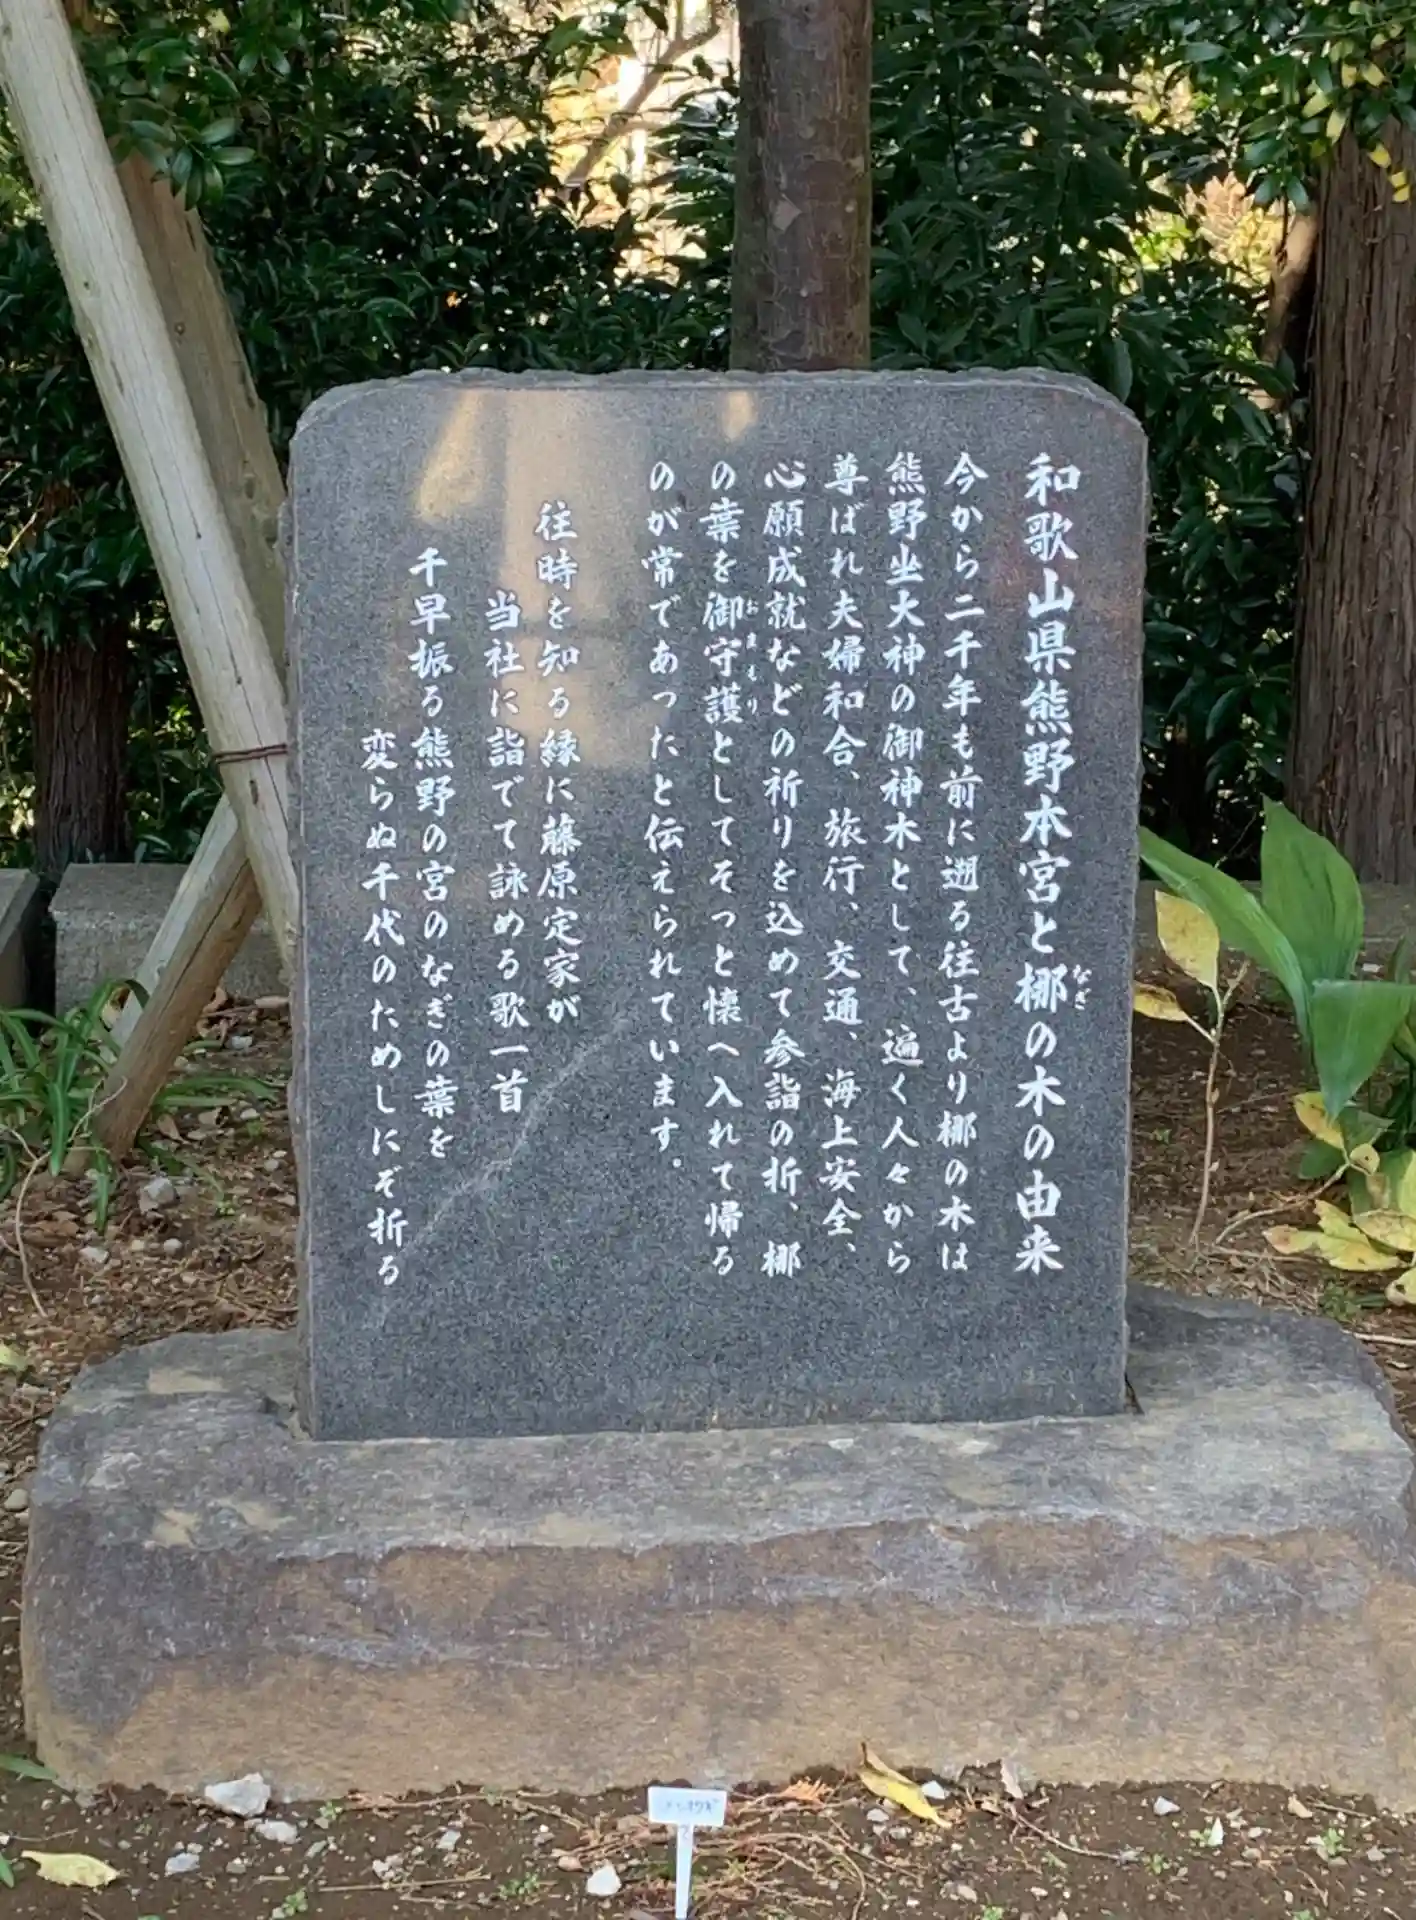 和歌山県熊野本宮と梛の木の由来
なぎ
今から二千年も前に遡る往古より梛の木は
熊野坐大神の御神木として、遍く人々から
尊ばれ夫婦和合、旅行、交通、海上安全、
心願成就などの祈りを込めて参詣の折、梛
の葉を御守護としてそっと懐へ入れて帰る
おまもり
のが常であったと伝えられています。
往時を知る縁に藤原定家が
当社に詣でて詠める歌一首
千早振る熊野の宮のなぎの葉を
変らぬ千代のためしにぞ折る